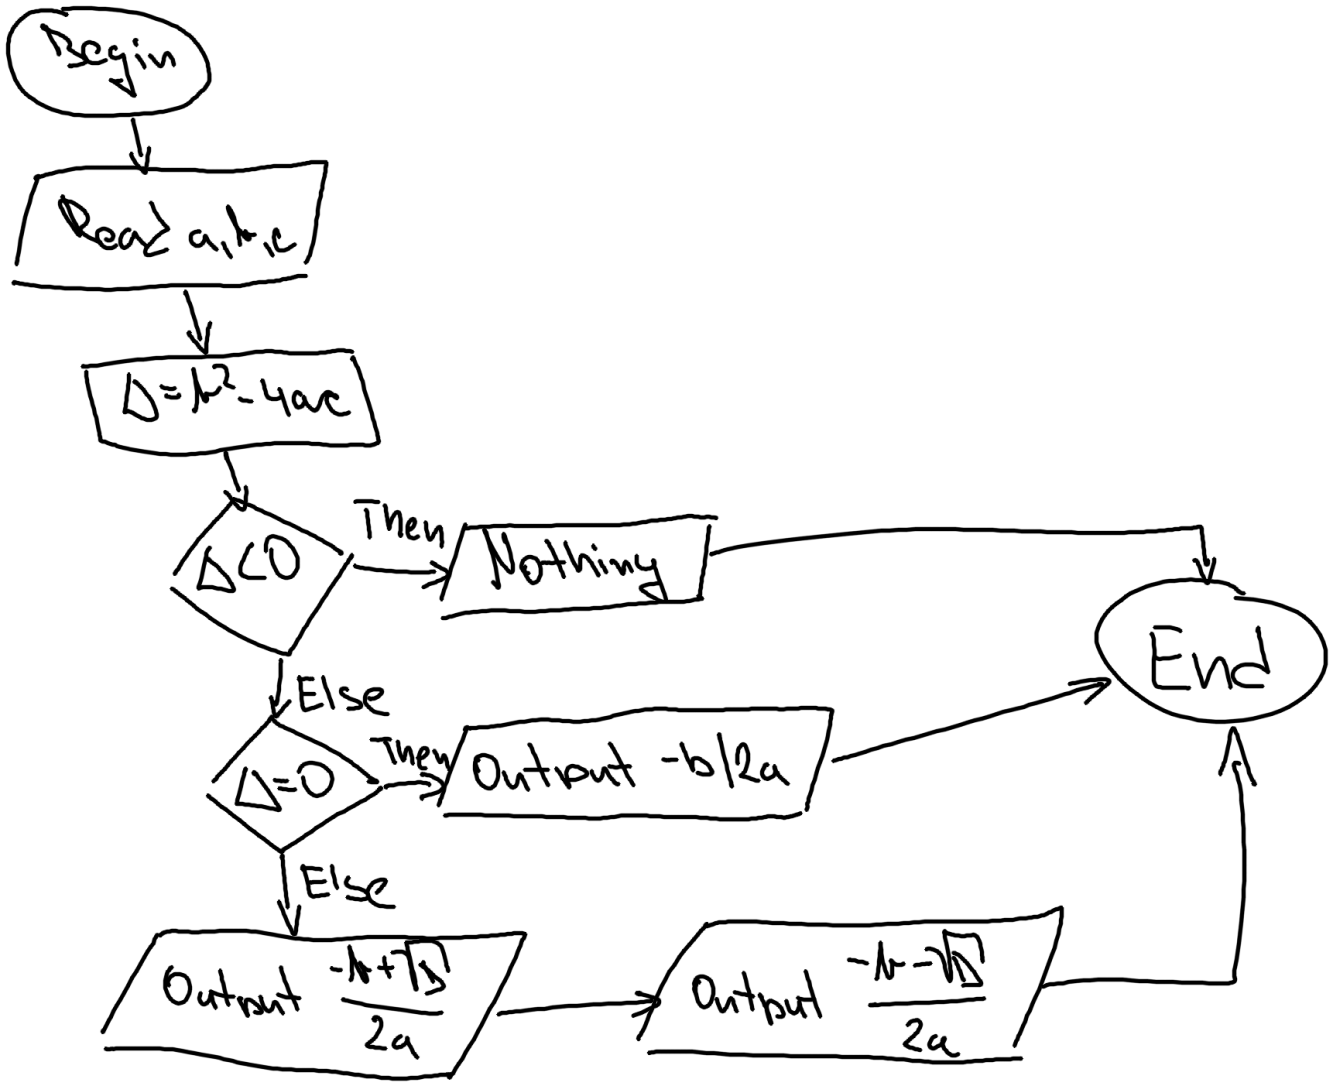 Begin
Read a, b, c
Δ = b² - 4ac
Δ < 0
Then
Nothing
End
Else
Δ = 0
Then
Output -b/2a
Else
Output (-b + √Δ) / 2a
Output (-b - √Δ) / 2a